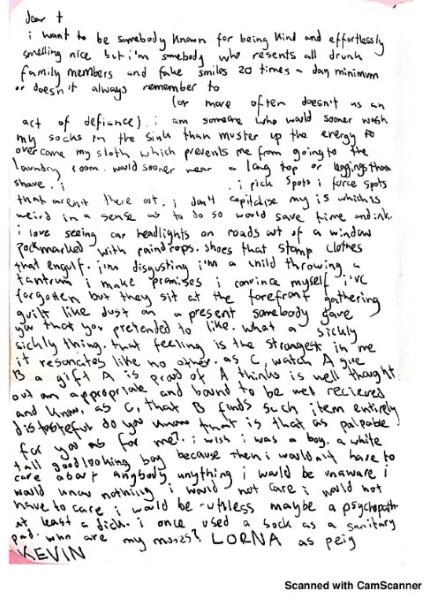 dear t
i want to be somebody known for being kind and effortlessly
smelling nice but i'm somebody who resents all drunk
family members and fake smiles 20 times a day minimum
or doesn't always remember to
(or more often doesn't as an
act of defiance). i am someone who would sooner wash
my socks in the sink than muster up the energy to
overcome my sloth which prevents me from going to the
laundry room. would sooner wear a long top or leggings than
shave. i i pick spots i force spots
that aren't there out. i don't capitalise my is which is
weird in a sense as to do so would save time and ink.
i love seeing car headlights on roads out of a window
pockmarked with raindrops. shoes that stomp clothes
that engulf. i'm disgusting i'm a child throwing a
tantrum i make promises i convince myself i've
forgotten but they sit at the forefront gathering
guilt like dust on a present somebody gave
you that you pretended to like. what a sickly
sickly thing. that feeling is the strongest in me
it resonates like no other. as C, watch A give
B a gift A is proud of A thinks is well thought
out an appropriate and bound to be well recieved
and know, as C, that B finds such item entirely
distasteful do you know that is that as palpable
for you as for me?. i wish i was a boy. a white
tall goodlooking boy because then i wouldn't have to
care about anybody anything i would be unaware i
would know nothing i would not care i would not
have to care i would be ruthless maybe a psychopath
at least a dick. i once used a sock as a sanitary
pad. who are my muses? LORNA as peig
KEVIN
Scanned with CamScanner